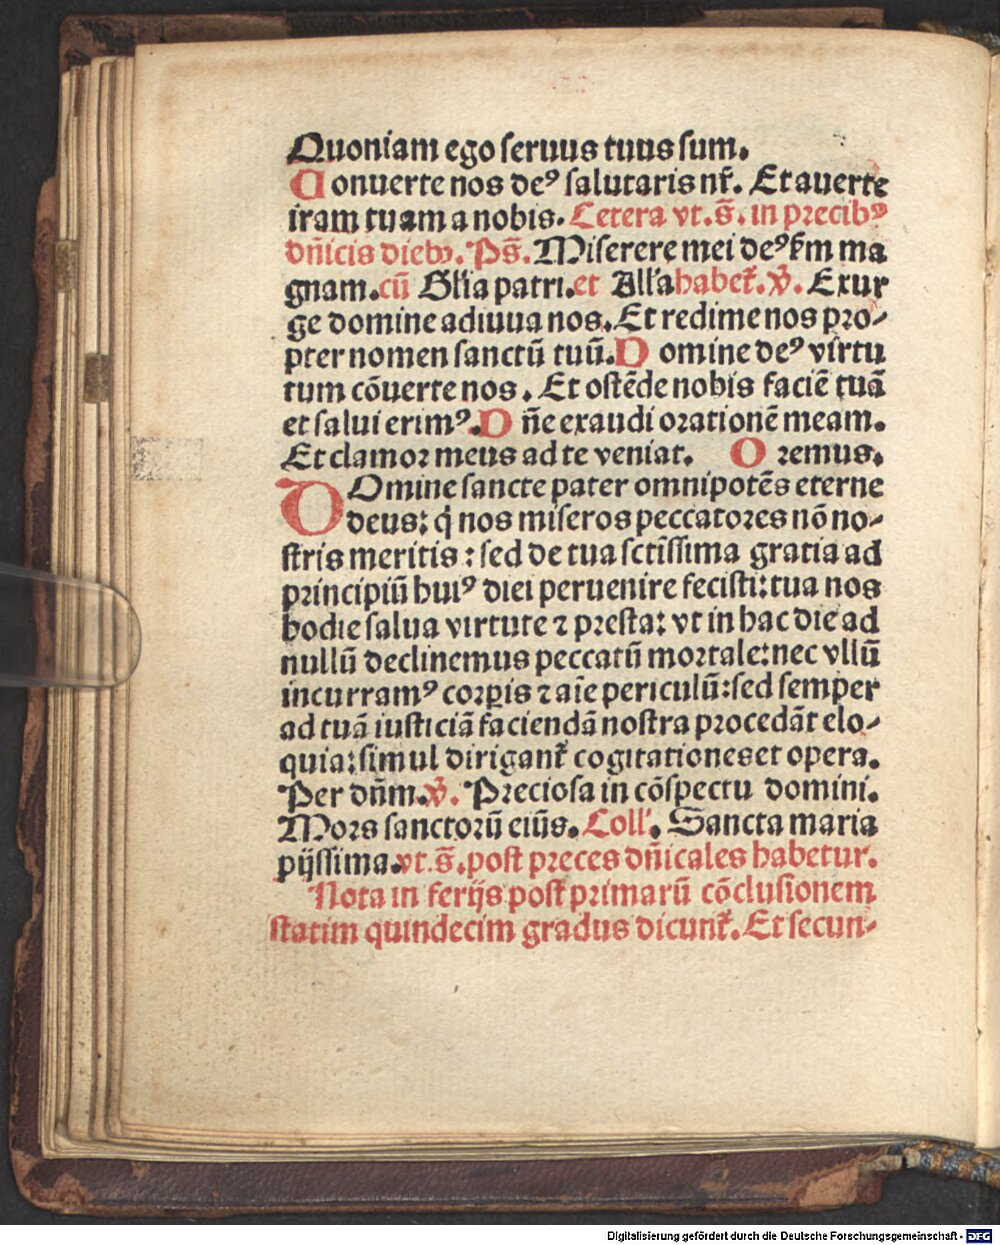 Quoniam ego seruus tuus sum.
Conuerte nos deꝰ salutaris nr̃. Et auerte
iram tuam a nobis. Cetera vt. s̃. in precibꝰ
dñicis diebꝫ. Ps̃. Miserere mei deꝰ ẜm ma
gnam. cũ Gl'ia patri. et All'a habet̃. ꝟ. Exur
ge domine adiuua nos. Et redime nos pro-
pter nomen sanctũ tuũ. Domine deꝰ virtu
tum cõuerte nos. Et ostẽde nobis faciẽ tuã
et salui erimꝰ. Dñe exaudi orationẽ meam.
Et clamor meus ad te veniat. Oremus.
DOmine sancte pater omnipotẽs eterne
deus: q̃ nos miseros peccatores nõ no-
stris meritis: sed de tua sctĩssima gratia ad
principiũ huiꝰ diei peruenire fecisti: tua nos
hodie salua virtute ⁊ presta: vt in hac die ad
nullũ declinemus peccatũ mortale: nec vllũ
incurramꝰ corꝑis ⁊ aĩe periculũ: sed semper
ad tuã iusticiã faciendã nostra procedãt elo-
quia: simul dirigant̃ cogitationes et opera.
Per dñm. ꝟ. Preciosa in cõspectu domini.
Mors sanctorũ eiũs. Coll'. Sancta maria
pijssima. vt. s̃. post preces dñicales habetur.
Nota in ferijs post primarũ cõclusionem
statim quindecim gradus dicunt̃. Et secun-
Digitalisierung gefördert durch die Deutsche Forschungsgemeinschaft - DFG